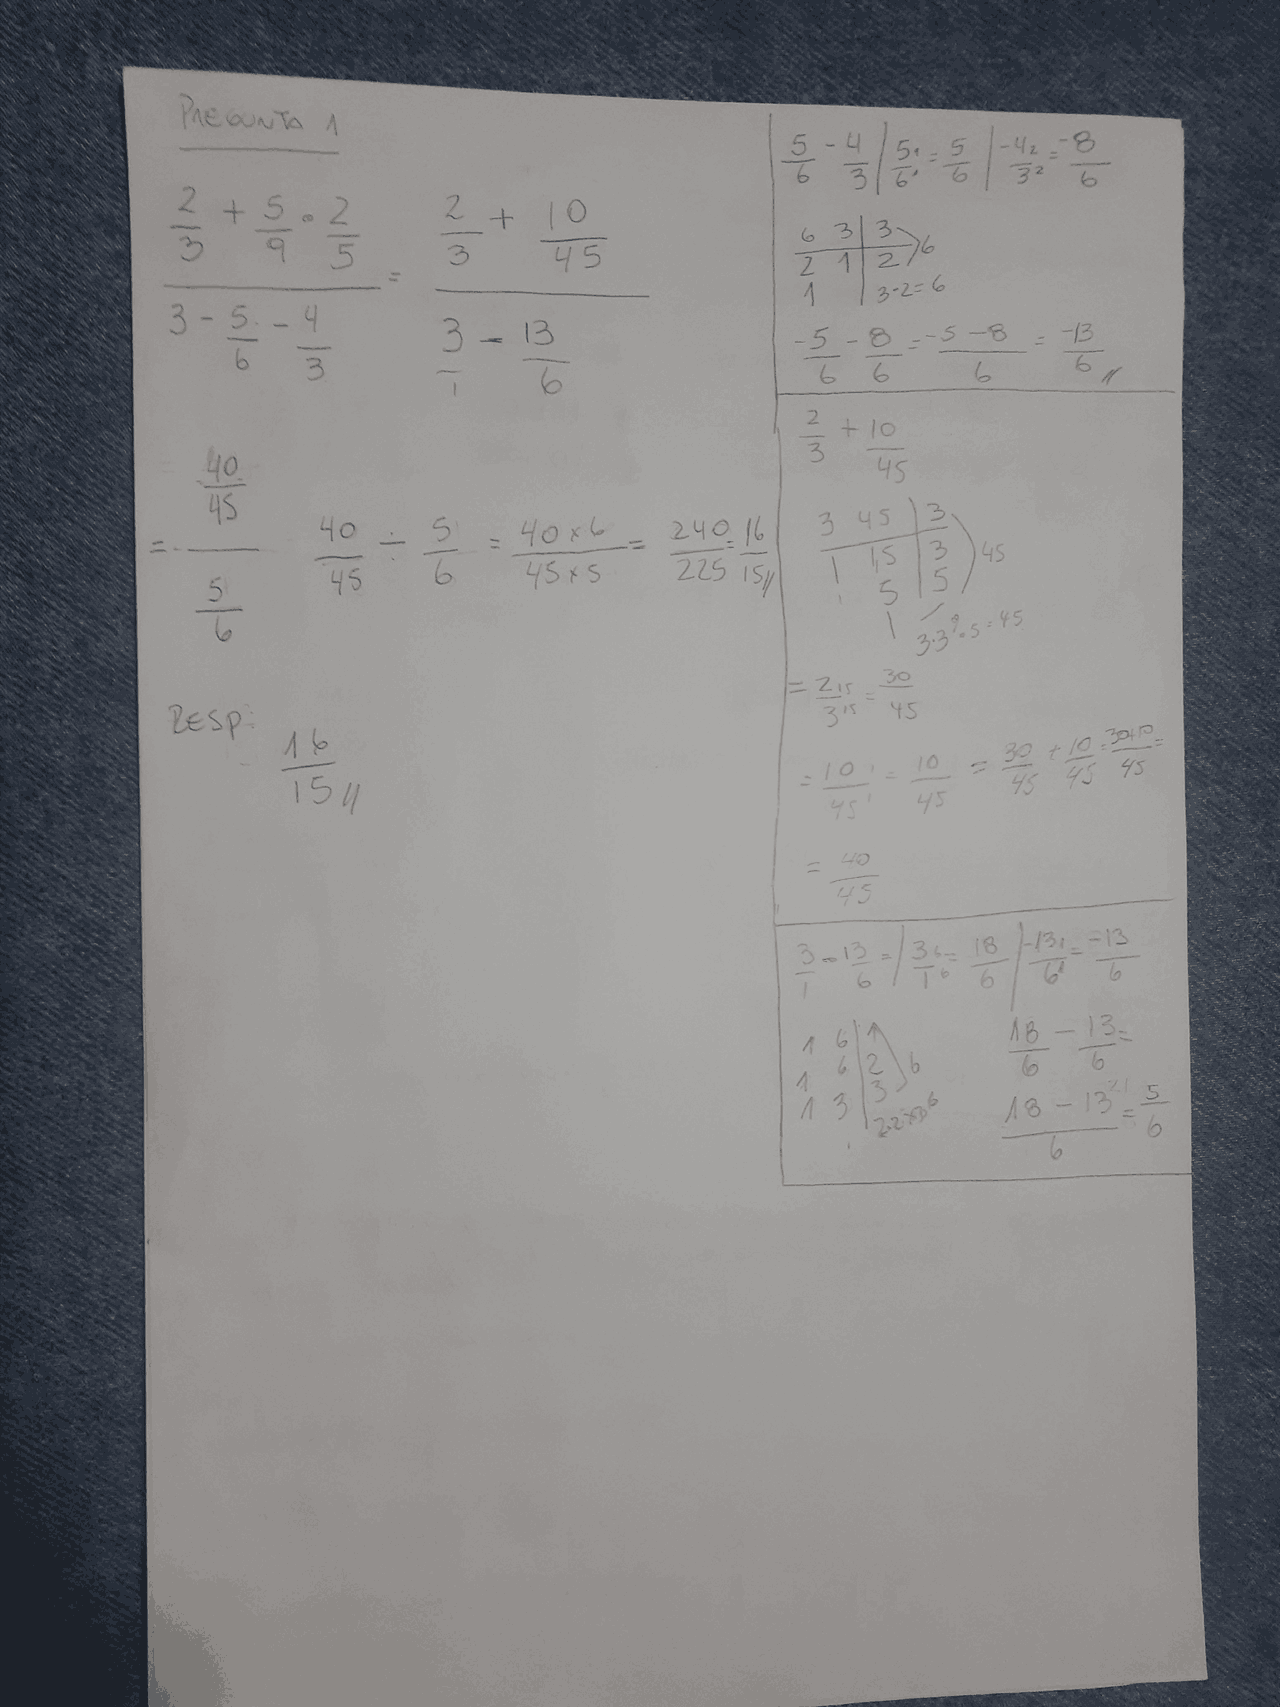 PREGUNTA 1
2/3 + 5/9 · 2/5 / 3 - 5/6 - 4/3 = 2/3 + 10/45 / 3/1 - 13/6
= 40/45 / 5/6 40/45 ÷ 5/6 = 40×6/45×5 = 240/225 = 16/15 //
RESP:
16/15 //
5/6 - 4/3 | 5 1/6 1 = 5/6 | -4 2/3 2 = -8/6
6 3 | 3
2 1 | 2 6
1 | 3·2=6
-5/6 - 8/6 = -5-8/6 = -13/6 //
2/3 + 10/45
3 45 | 3
1 15 | 3 45
5 | 5
1 3·3 9·5=45
= 2 15/3 15 = 30/45
= 10 1/45 1 = 10/45 = 30/45 + 10/45 = 30+10/45 =
= 40/45
3/1 - 13/6 = | 3 6/1 6 = 18/6 | -13 1/6 1 = -13/6
1 6 | 1
1 6 | 2 6
1 3 | 3
18/6 - 13/6 =
18 - 13/6 = 5/6